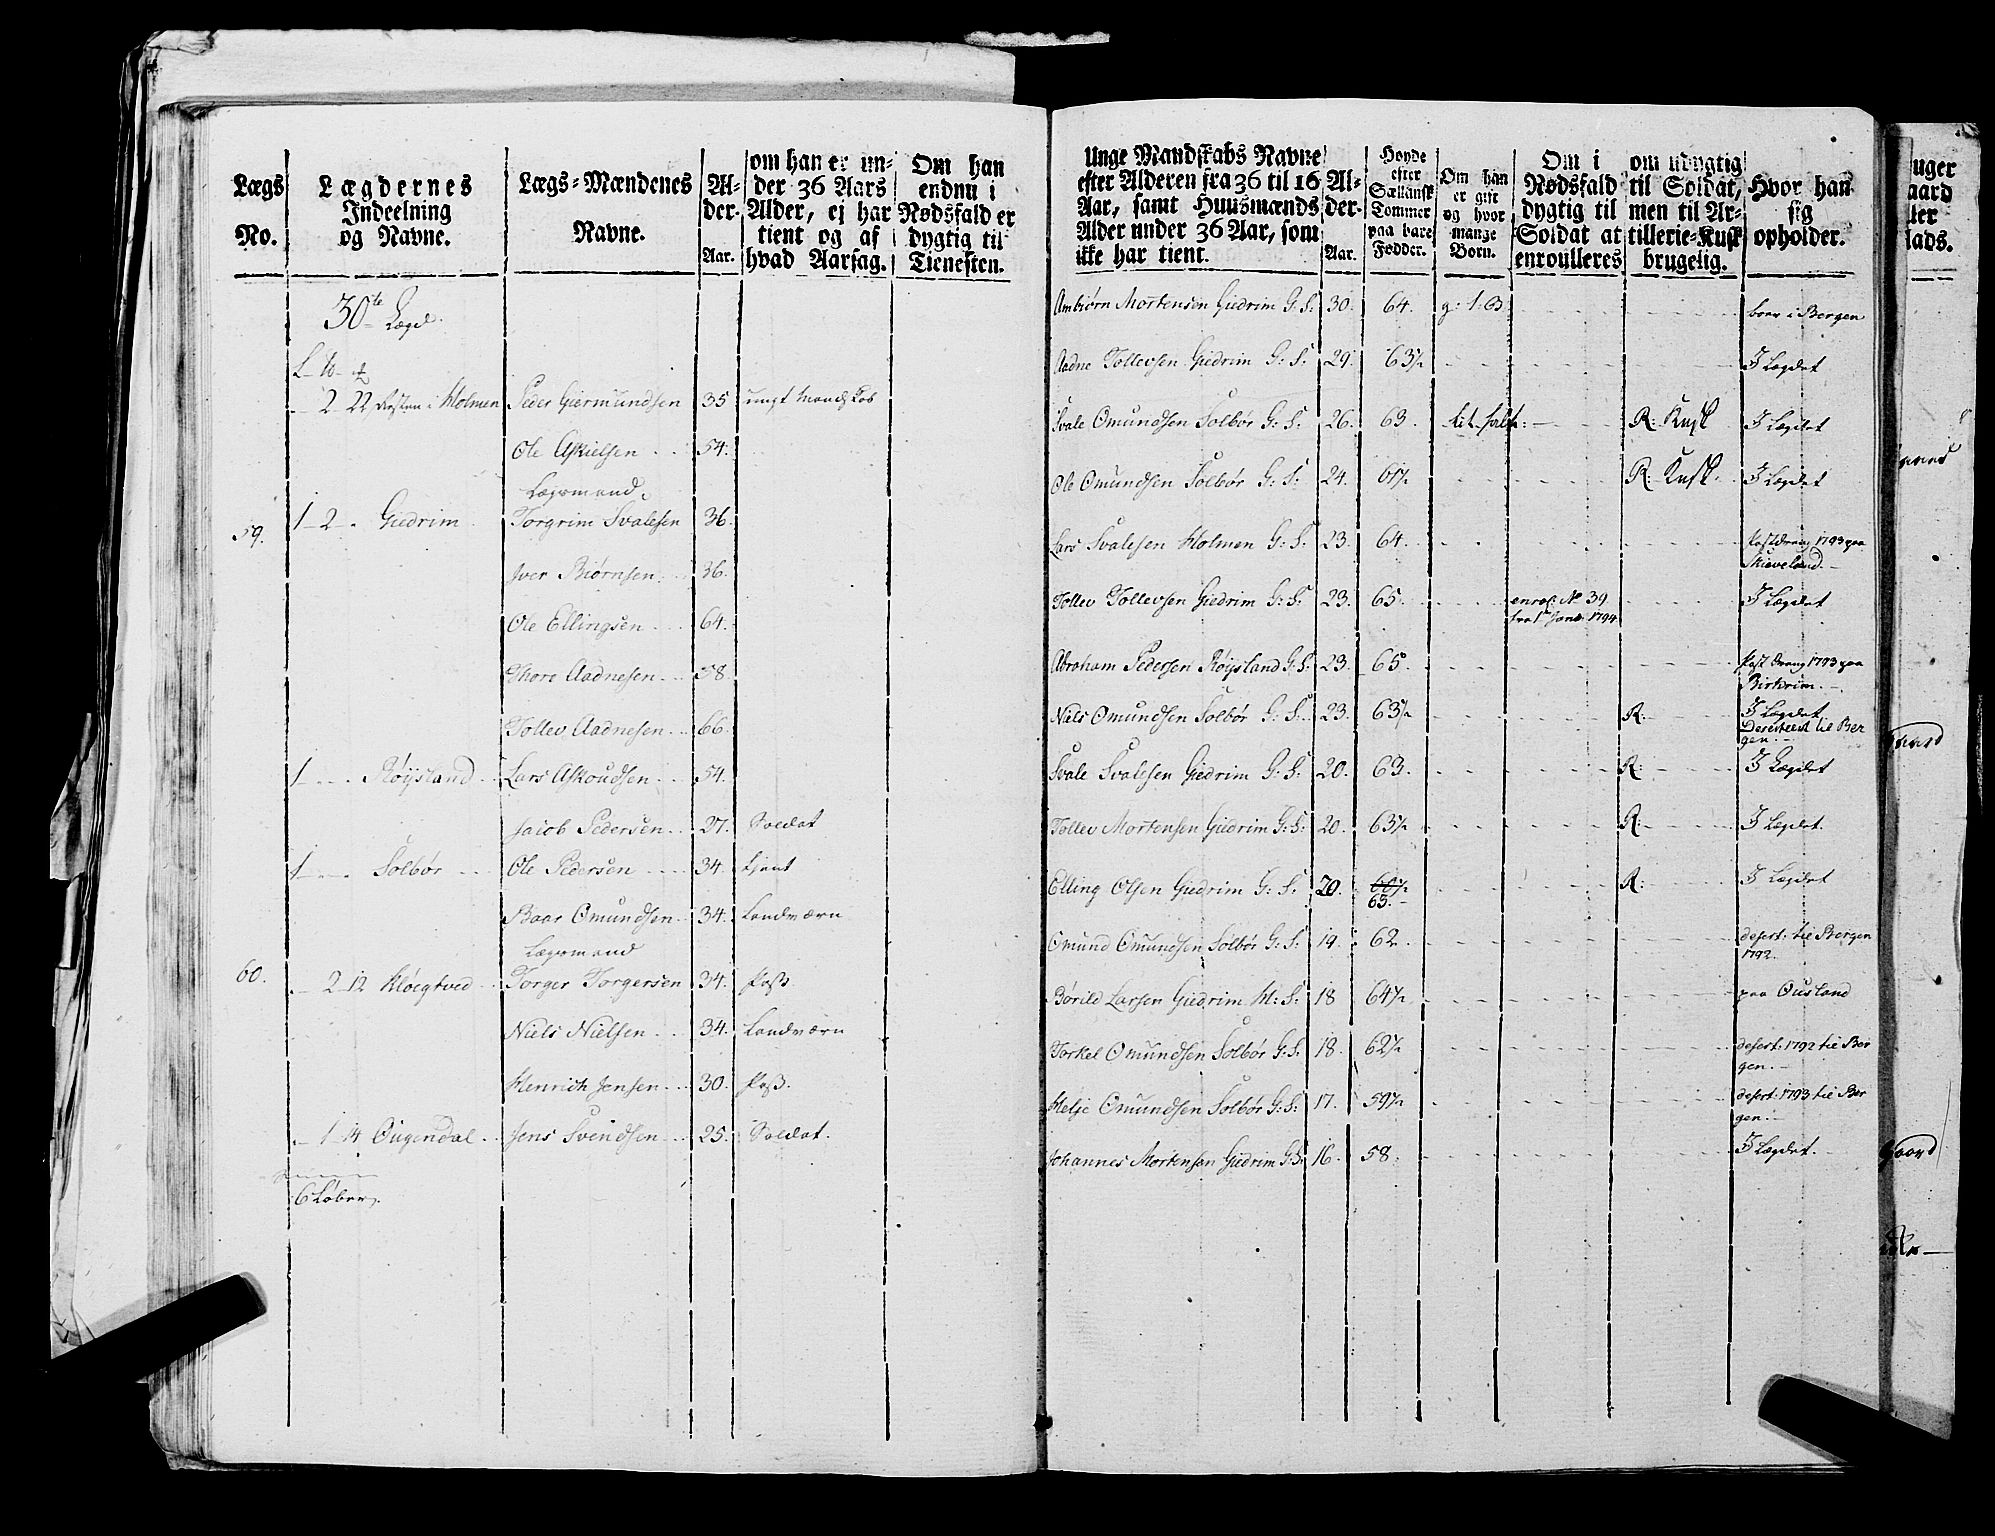 Lægs No.
Lægdernes Indeelning og Navne.
Lægs-Mændenes Navne.
Al-der. Aar.
om han er un-der 36 Aars Alder, ej har tient og af hvad Aarsag.
Om han endnu i Nødsfald er dygtig til Tienesten.
30te Lægd.
2 22 Resten i Holmen Peder Giermundsen 35 ungt Mandskab
Ole Askielsen 54.
Lægsmand
59. 1 2 Giedrim Torgrim Svalesen 36.
Iver Biørnsen 36.
Ole Ellingsen 64.
Thore Aadnesen 58.
Tollev Aadnesen 66.
1 Røysland Lars Askoudsen 54.
Jacob Pedersen 27. Soldat
1 Solbør Ole Pedersen 34. tjent
Baar Omundsen 34. Landværn
Lægsmand
60. 2 12 Kløegtved Torger Torgersen 34. Pass
Niels Nielsen 34. Landværn
Henrich Jensen 30. Pass.
1 14 Ougendal Jens Svendsen 25. Soldat.
6 Løber.
Unge Mandskabs Navne efter Alderen fra 36 til 16 Aar, samt Huusmænds Alder under 36 Aar, som ikke har tient.
Al-der. Aar.
Høyde efter Sællansk Tommer paa bare Fødder.
Om han er gift og hvor mange Børn.
Om i Nødsfald dygtig til Soldat at enroulleres
om udygtig til Soldat, men til Ar-tillerie-Kusk brugelig.
Hvor han sig opholder.
Ambiørn Mortensen Giedrim G: S: 30. 64. g: 1. B. boer i Bergen
Aadne Tollevsen Giedrim G: S: 29. 63½ I Lægdet
Svale Omundsen Solbør G: S: 26. 63. R: Kusk I Lægdet
Ole Omundsen Solbør G: S: 24. 61½ R: Kusk. I Lægdet
Lars Svalesen Holmen G: S: 23. 64. Postdreng 1793 paa
Skieveland.
Tollev Tollevsen Giedrim G: S: 23. 65. enrol: No 39 I Lægdet
fra 1te Janu: 1794
Abraham Pedersen Røysland G: S: 23. 65. Postdreng 1793 paa
Birkrim.
Niels Omundsen Solbør G: S: 23. 63½ R: I Lægdet
Deserteert til Ber
gen.
Svale Svalesen Giedrim G: S: 20. 63. R: I Lægdet
Tollev Mortensen Giedrim G: S: 20. 63½ R: I Lægdet.
Elling Olsen Giedrim G: S: 20. 60½ R: I Lægdet
63.
Omund Omundsen Solbør G: S: 19. 62. desert: til Bergen
1792.
Børild Larsen Giedrim H: S: 18 64½ paa Ousland
Torkel Omundsen Solbør G: S: 18. 62½ desert: 1792 til Ber
gen.
Helje Omundsen Solbør G: S: 17. 59½ desert: 1793 til Ber
gen.
Johannes Mortensen Giedrim G: S: 16. 58. I Lægdet.
uger
aard
ller
lads.